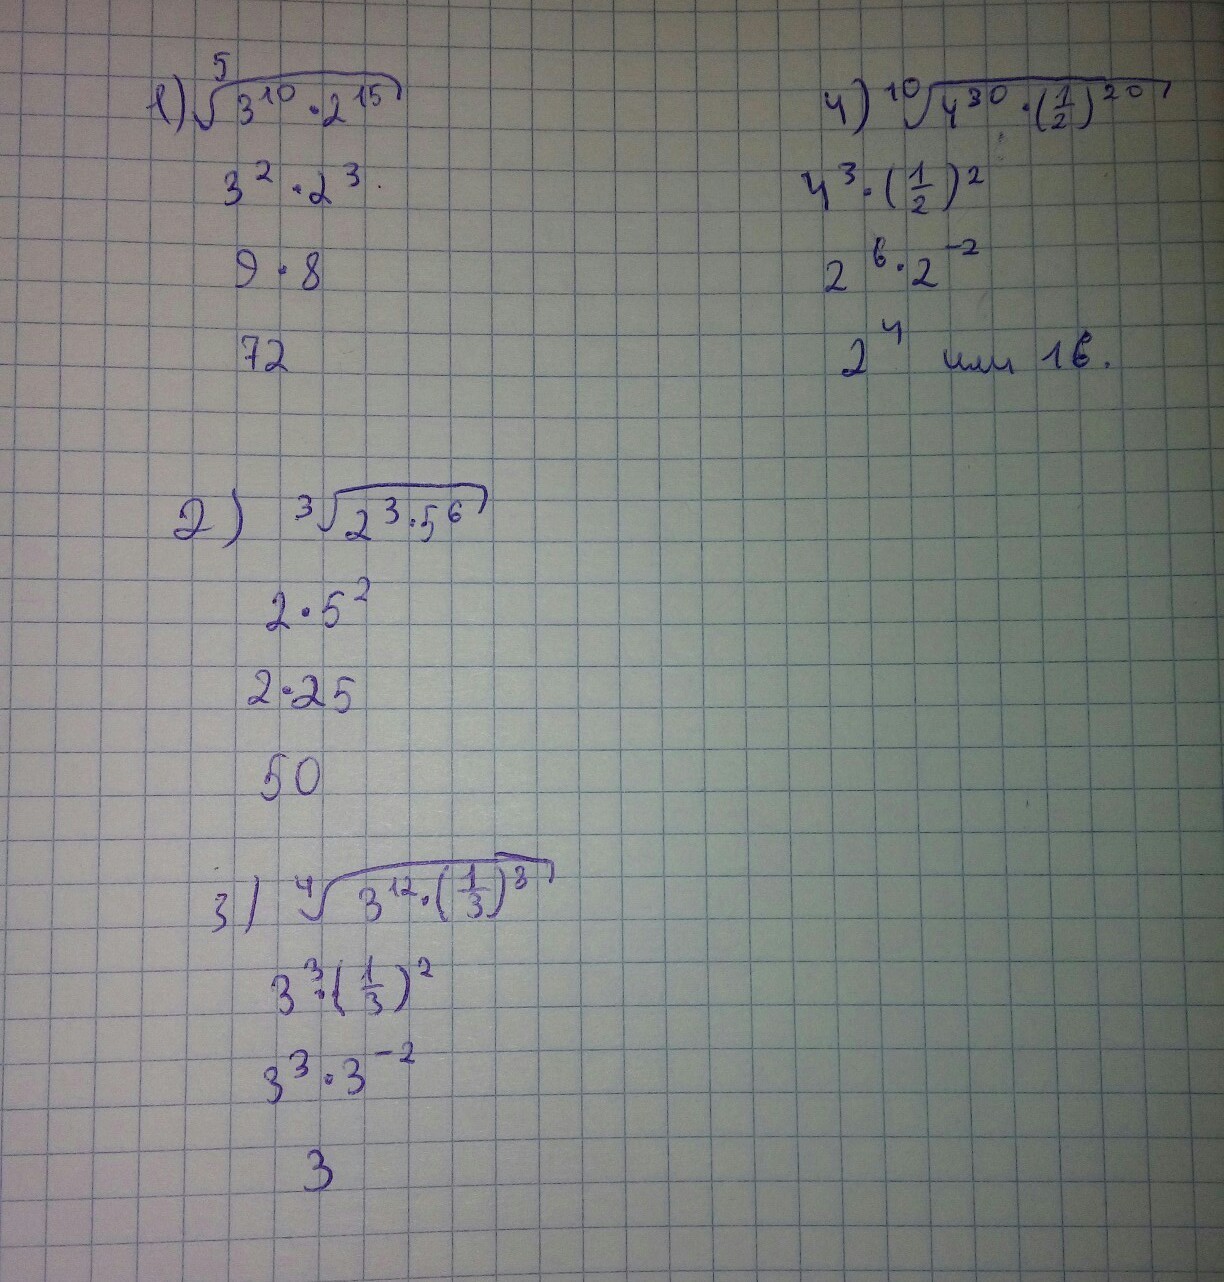 1) ⁵√(3¹⁰ · 2¹⁵)
3² · 2³
9 · 8
72
2) ³√(2³ · 5⁶)
2 · 5²
2 · 25
50
3) ⁴√(3¹² · (1/3)³)
3³ · (1/3)²
3³ · 3⁻²
3
4) ¹⁰√(4³⁰ · (1/2)²⁰)
4³ · (1/2)²
2⁶ · 2⁻²
2⁴ или 16.